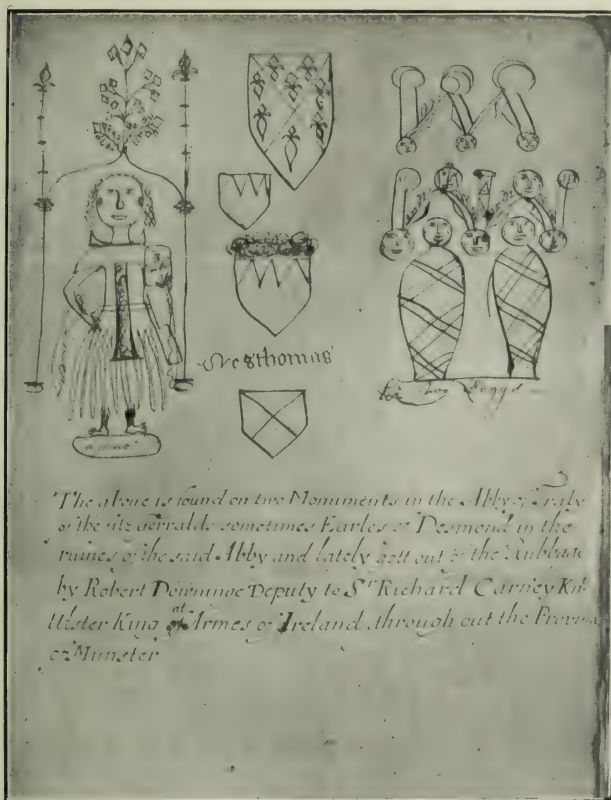 The aboue is found on two Monuments in the Abby of Traly
of the fitz Gerralds sometimes Earles of Desmond in the
ruines of the said Abby and lately gott out of the Rubbage
by Robert Downinge Deputy to Sr Richard Carney Kt
Ulster King at of Armes of Ireland through out the Province
of Munster